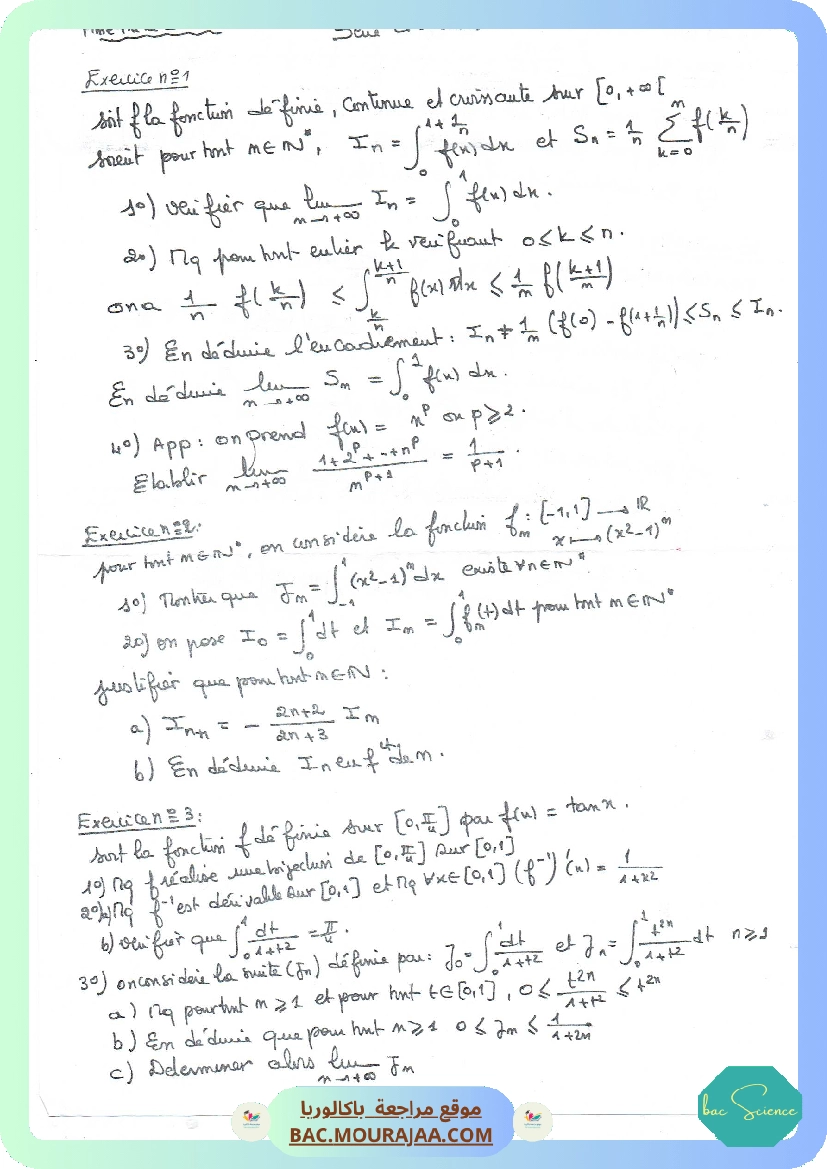 Exercice n°1
soit f la fonction définie, continue et croissante sur [0, +∞[
soient pour tout n ∈ ℕ*, In = ∫₀^(1+1/n) f(x) dx et Sn = 1/n Σ_(k=0)^n f(k/n)
1°) Verifier que lim_(n→+∞) In = ∫₀^1 f(x) dx.
2°) Mq pour tout entier k verifiant 0 ≤ k ≤ n.
on a 1/n f(k/n) ≤ ∫_(k/n)^((k+1)/n) f(x) dx ≤ 1/n f((k+1)/n)
3°) En déduire l'encadrement : In + 1/n (f(0) - f(1+1/n)) ≤ Sn ≤ In.
En déduire lim_(n→+∞) Sn = ∫₀^1 f(x) dx.
4°) App : on prend f(x) = x^p où p ≥ 2.
Etablir lim_(n→+∞) (1+2^p+--+n^p)/(n^(p+1)) = 1/(p+1).
Exercice n°2:
pour tout n ∈ ℕ*, on considère la fonction fn : [-1,1] → ℝ
x ↦ (x²-1)^n
1°) Montrer que Jn = ∫_(-1)^1 (x²-1)^n dx existe ∀n∈ℕ*
2°) on pose I₀ = ∫₀^1 dt et In = ∫₀^1 fn(t) dt pour tout n ∈ ℕ*
justifier que pour tout n ∈ ℕ :
a) In+1 = - (2n+2)/(2n+3) In
b) En déduire In en f^ct de n.
Exercice n°3:
soit la fonction f définie sur [0, π/4] par f(x) = tan x.
1°) Mq f réalise une bijection de [0, π/4] sur [0,1]
2°) a) Mq f⁻¹ est dérivable sur [0,1] et Mq ∀x∈[0,1] (f⁻¹)'(x) = 1/(1+x²)
b) Verifier que ∫₀^1 dt/(1+t²) = π/4.
3°) on considère la suite (Jn) définie par : J₀ = ∫₀^1 dt/(1+t²) et Jn = ∫₀^1 t^(2n)/(1+t²) dt n ≥ 1
a) Mq pour tout n ≥ 1 et pour tout t ∈ [0,1], 0 ≤ t^(2n)/(1+t²) ≤ t^(2n)
b) En déduire que pour tout n ≥ 1 0 ≤ Jn ≤ 1/(1+2n)
c) Determiner alors lim_(n→+∞) Jn
موقع مراجعة باكالوريا
BAC.MOURAJAA.COM
bac Science